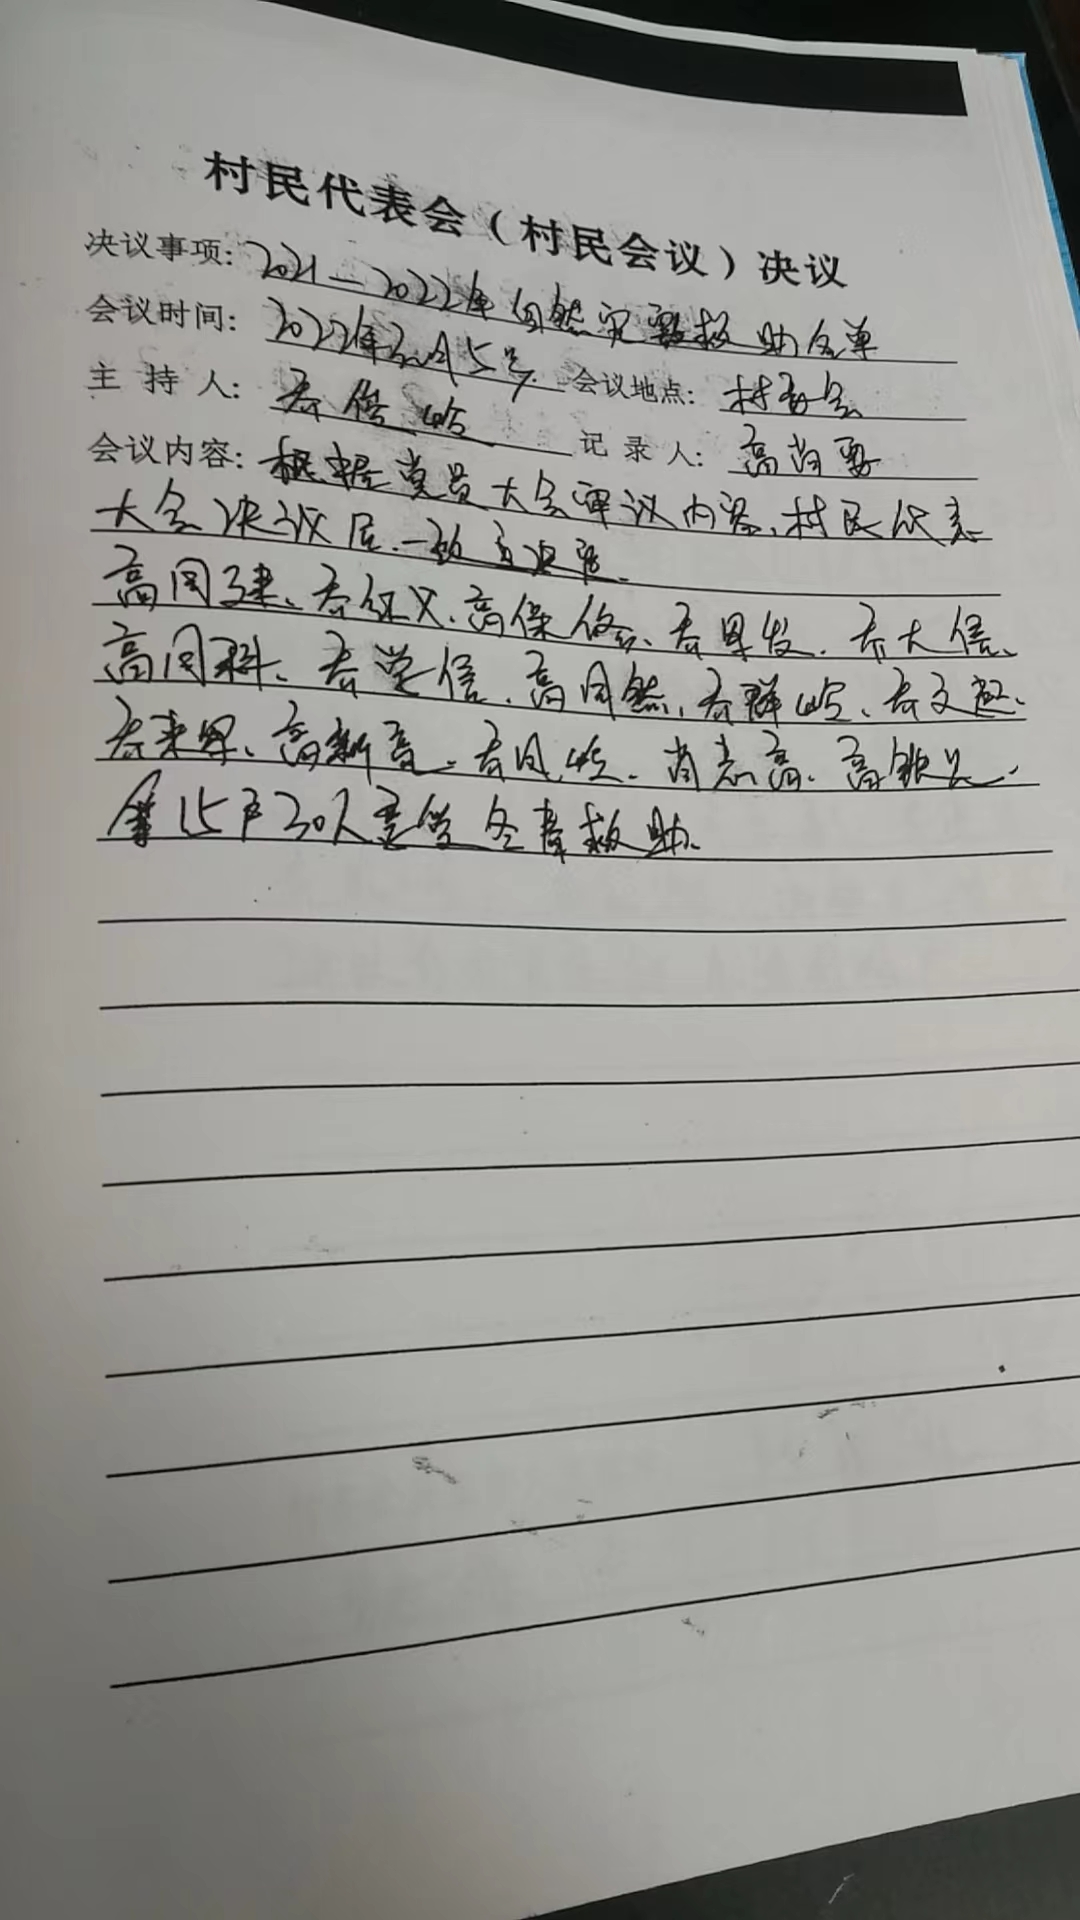 村民代表会（村民会议）决议
决议事项：2021—2022年自然灾害救助名单
会议时间：2022年2月15号 会议地点：村委会
主持人： 记录人：高
会议内容：根据党员大会审议内容、村民代表
大会决议后、一致
高同建、乔红义、高保俊、乔早发、乔大信、
高同科、乔学信、高同然、乔群岭、乔文超、
乔来早、高新亮、乔凤岭、肖志高、高银
等15户30人享受冬春救助、